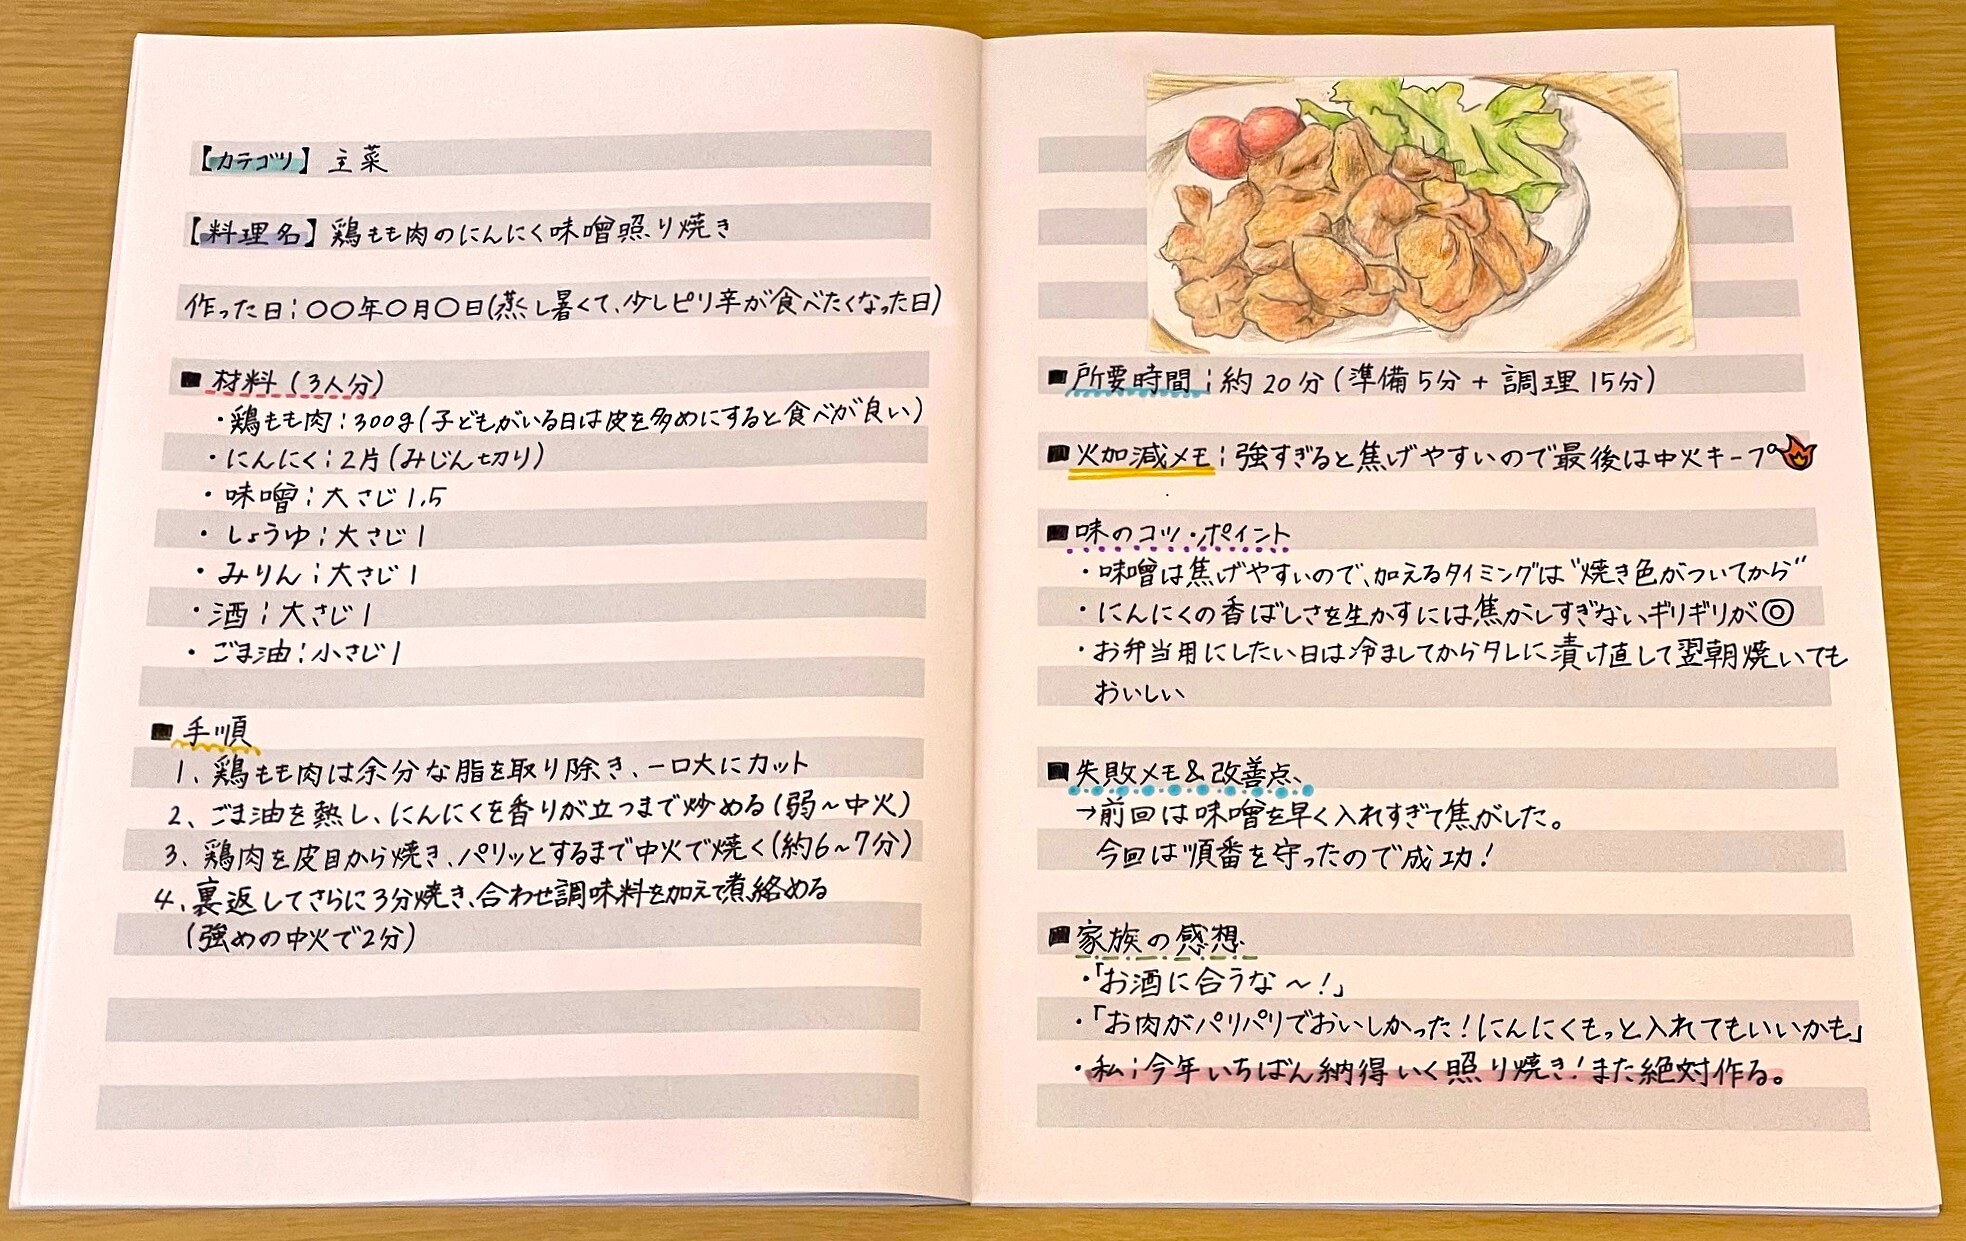 【カテゴリ】主菜
【料理名】鶏もも肉のにんにく味噌照り焼き
作った日：〇〇年〇月〇日(蒸し暑くて、少しピリ辛が食べたくなった日)
■材料(3人分)
・鶏もも肉：300g(子どもがいる日は皮を多めにすると食べが良い)
・にんにく：2片(みじん切り)
・味噌：大さじ1.5
・しょうゆ：大さじ1
・みりん：大さじ1
・酒：大さじ1
・ごま油：小さじ1
■手順
1、鶏もも肉は余分な脂を取り除き、一口大にカット
2、ごま油を熱し、にんにくを香りが立つまで炒める(弱～中火)
3、鶏肉を皮目から焼き、パリッとするまで中火で焼く(約6～7分)
4、裏返してさらに3分焼き、合わせ調味料を加えて煮絡める
(強めの中火で2分)
■所要時間：約20分(準備5分+調理15分)
■火加減メモ：強すぎると焦げやすいので最後は中火キープ
■味のコツ・ポイント
・味噌は焦げやすいので、加えるタイミングは"焼き色がついてから"
・にんにくの香ばしさを生かすには焦がしすぎないギリギリが◎
・お弁当用にしたい日は冷ましてからタレに漬け直して翌朝焼いても
おいしい
■失敗メモ&改善点、
→前回は味噌を早く入れすぎて焦がした。
今回は順番を守ったので成功!
■家族の感想
・「お酒に合うな～!」
・「お肉がパリパリでおいしかった!にんにくもっと入れてもいいかも」
・私：今年いちばん納得いく照り焼き!また絶対作る。